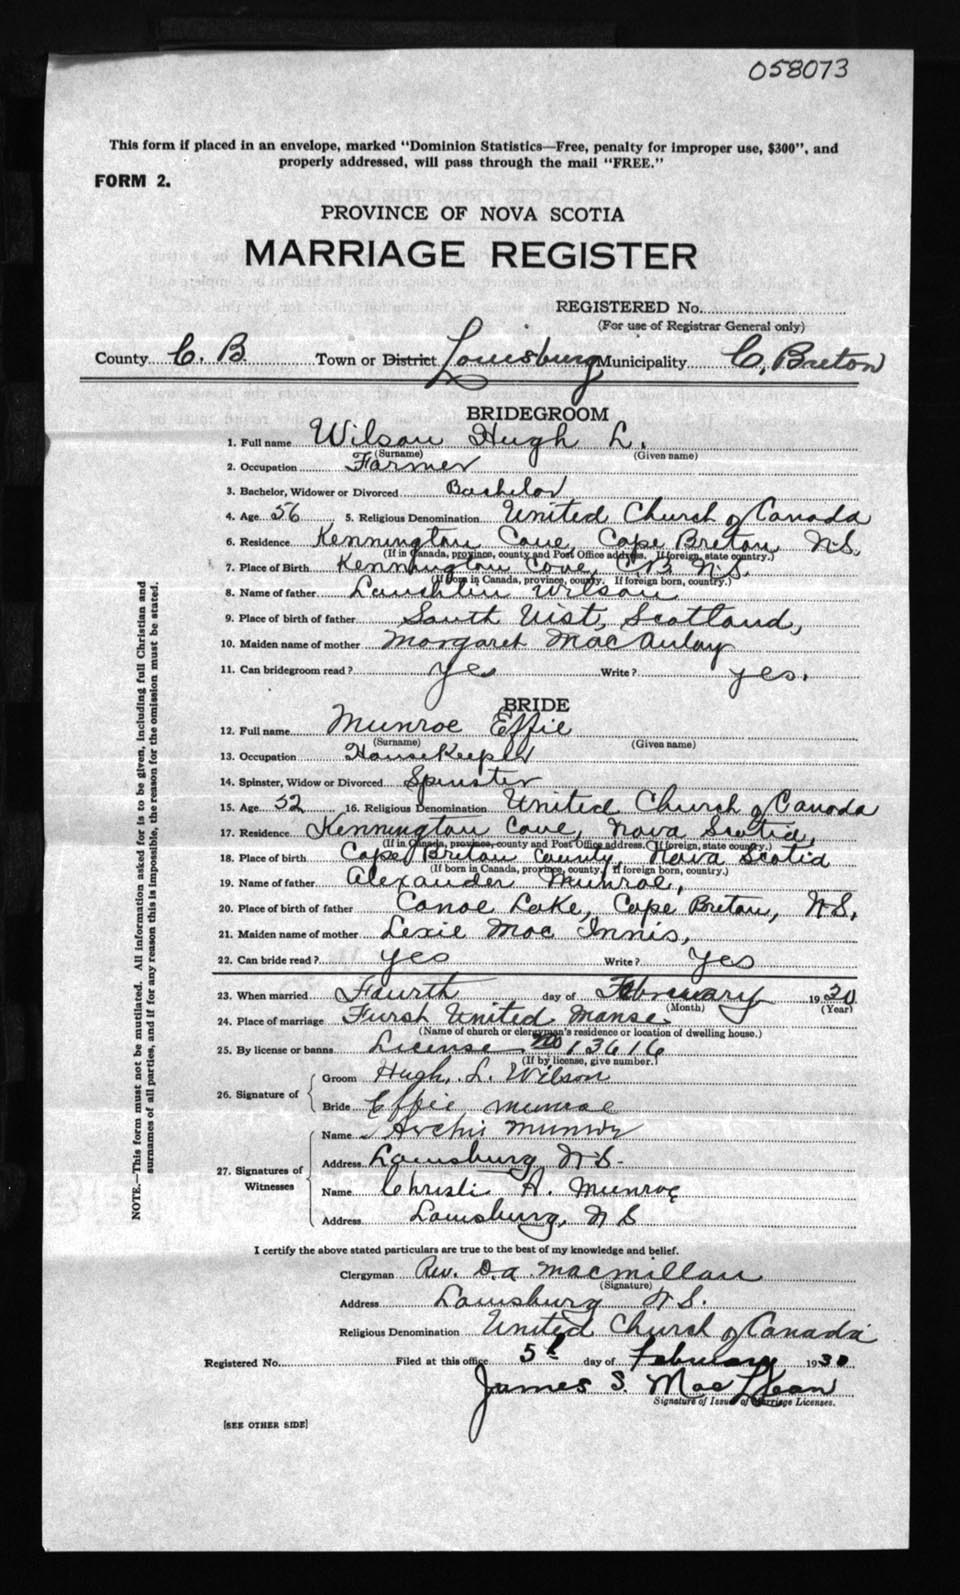 058073
This form if placed in an envelope, marked "Dominion Statistics—Free, penalty for improper use, $300", and
properly addressed, will pass through the mail "FREE."
FORM 2.
PROVINCE OF NOVA SCOTIA
MARRIAGE REGISTER
REGISTERED No.
(For use of Registrar General only)
County C. B. Town or District Louisburg Municipality C. Breton
BRIDEGROOM
1. Full name Wilson Hugh L.
(Surname) (Given name)
2. Occupation Farmer
3. Bachelor, Widower or Divorced Bachelor
4. Age 56 5. Religious Denomination United Church of Canada
6. Residence Kennington Cove, Cape Breton N.S.
(If in Canada, province, county and Post Office address. If foreign, state country.)
7. Place of Birth Kennington Cove, C.B. N.S.
(If born in Canada, province, county. If foreign born, country.)
8. Name of father Lauchlin Wilson
9. Place of birth of father South Uist, Scotland,
10. Maiden name of mother Margaret MacAulay
11. Can bridegroom read? yes Write? yes.
BRIDE
12. Full name Munroe Effie
(Surname) (Given name)
13. Occupation HouseKeeper
14. Spinster, Widow or Divorced Spinster
15. Age 52 16. Religious Denomination United Church of Canada
17. Residence Kennington Cove, Nova Scotia,
(If in Canada, province, county and Post Office address. If foreign, state country.)
18. Place of birth Cape Breton County, Nova Scotia
(If born in Canada, province, county. If foreign born, country.)
19. Name of father Alexander Munroe,
20. Place of birth of father Canoe Lake, Cape Breton, N.S.
21. Maiden name of mother Lexie Mac Innis,
22. Can bride read? yes Write? yes
23. When married Fourth day of February 1930
(Month) (Year)
24. Place of marriage First United Manse
(Name of church or clergyman's residence or location of dwelling house.)
25. By license or banns License No 13616
(If by license, give number.)
26. Signature of
Groom Hugh. L. Wilson
Bride Effie Munroe
27. Signatures of Witnesses
Name Archie Munroe
Address Louisburg N.S.
Name Christie A. Munroe
Address Louisburg, N S
I certify the above stated particulars are true to the best of my knowledge and belief.
Clergyman Rev. D.A. MacMillan
(Signature)
Address Louisburg N.S.
Religious Denomination United Church of Canada
Registered No. Filed at this office 5th day of February 1930
James S. MacLean
Signature of Issuer of Marriage Licenses.
[SEE OTHER SIDE]
NOTE.—This form must not be mutilated. All information asked for is to be given, including full Christian and
surnames of all parties, and if for any reason this is impossible, the reason for the omission must be stated.